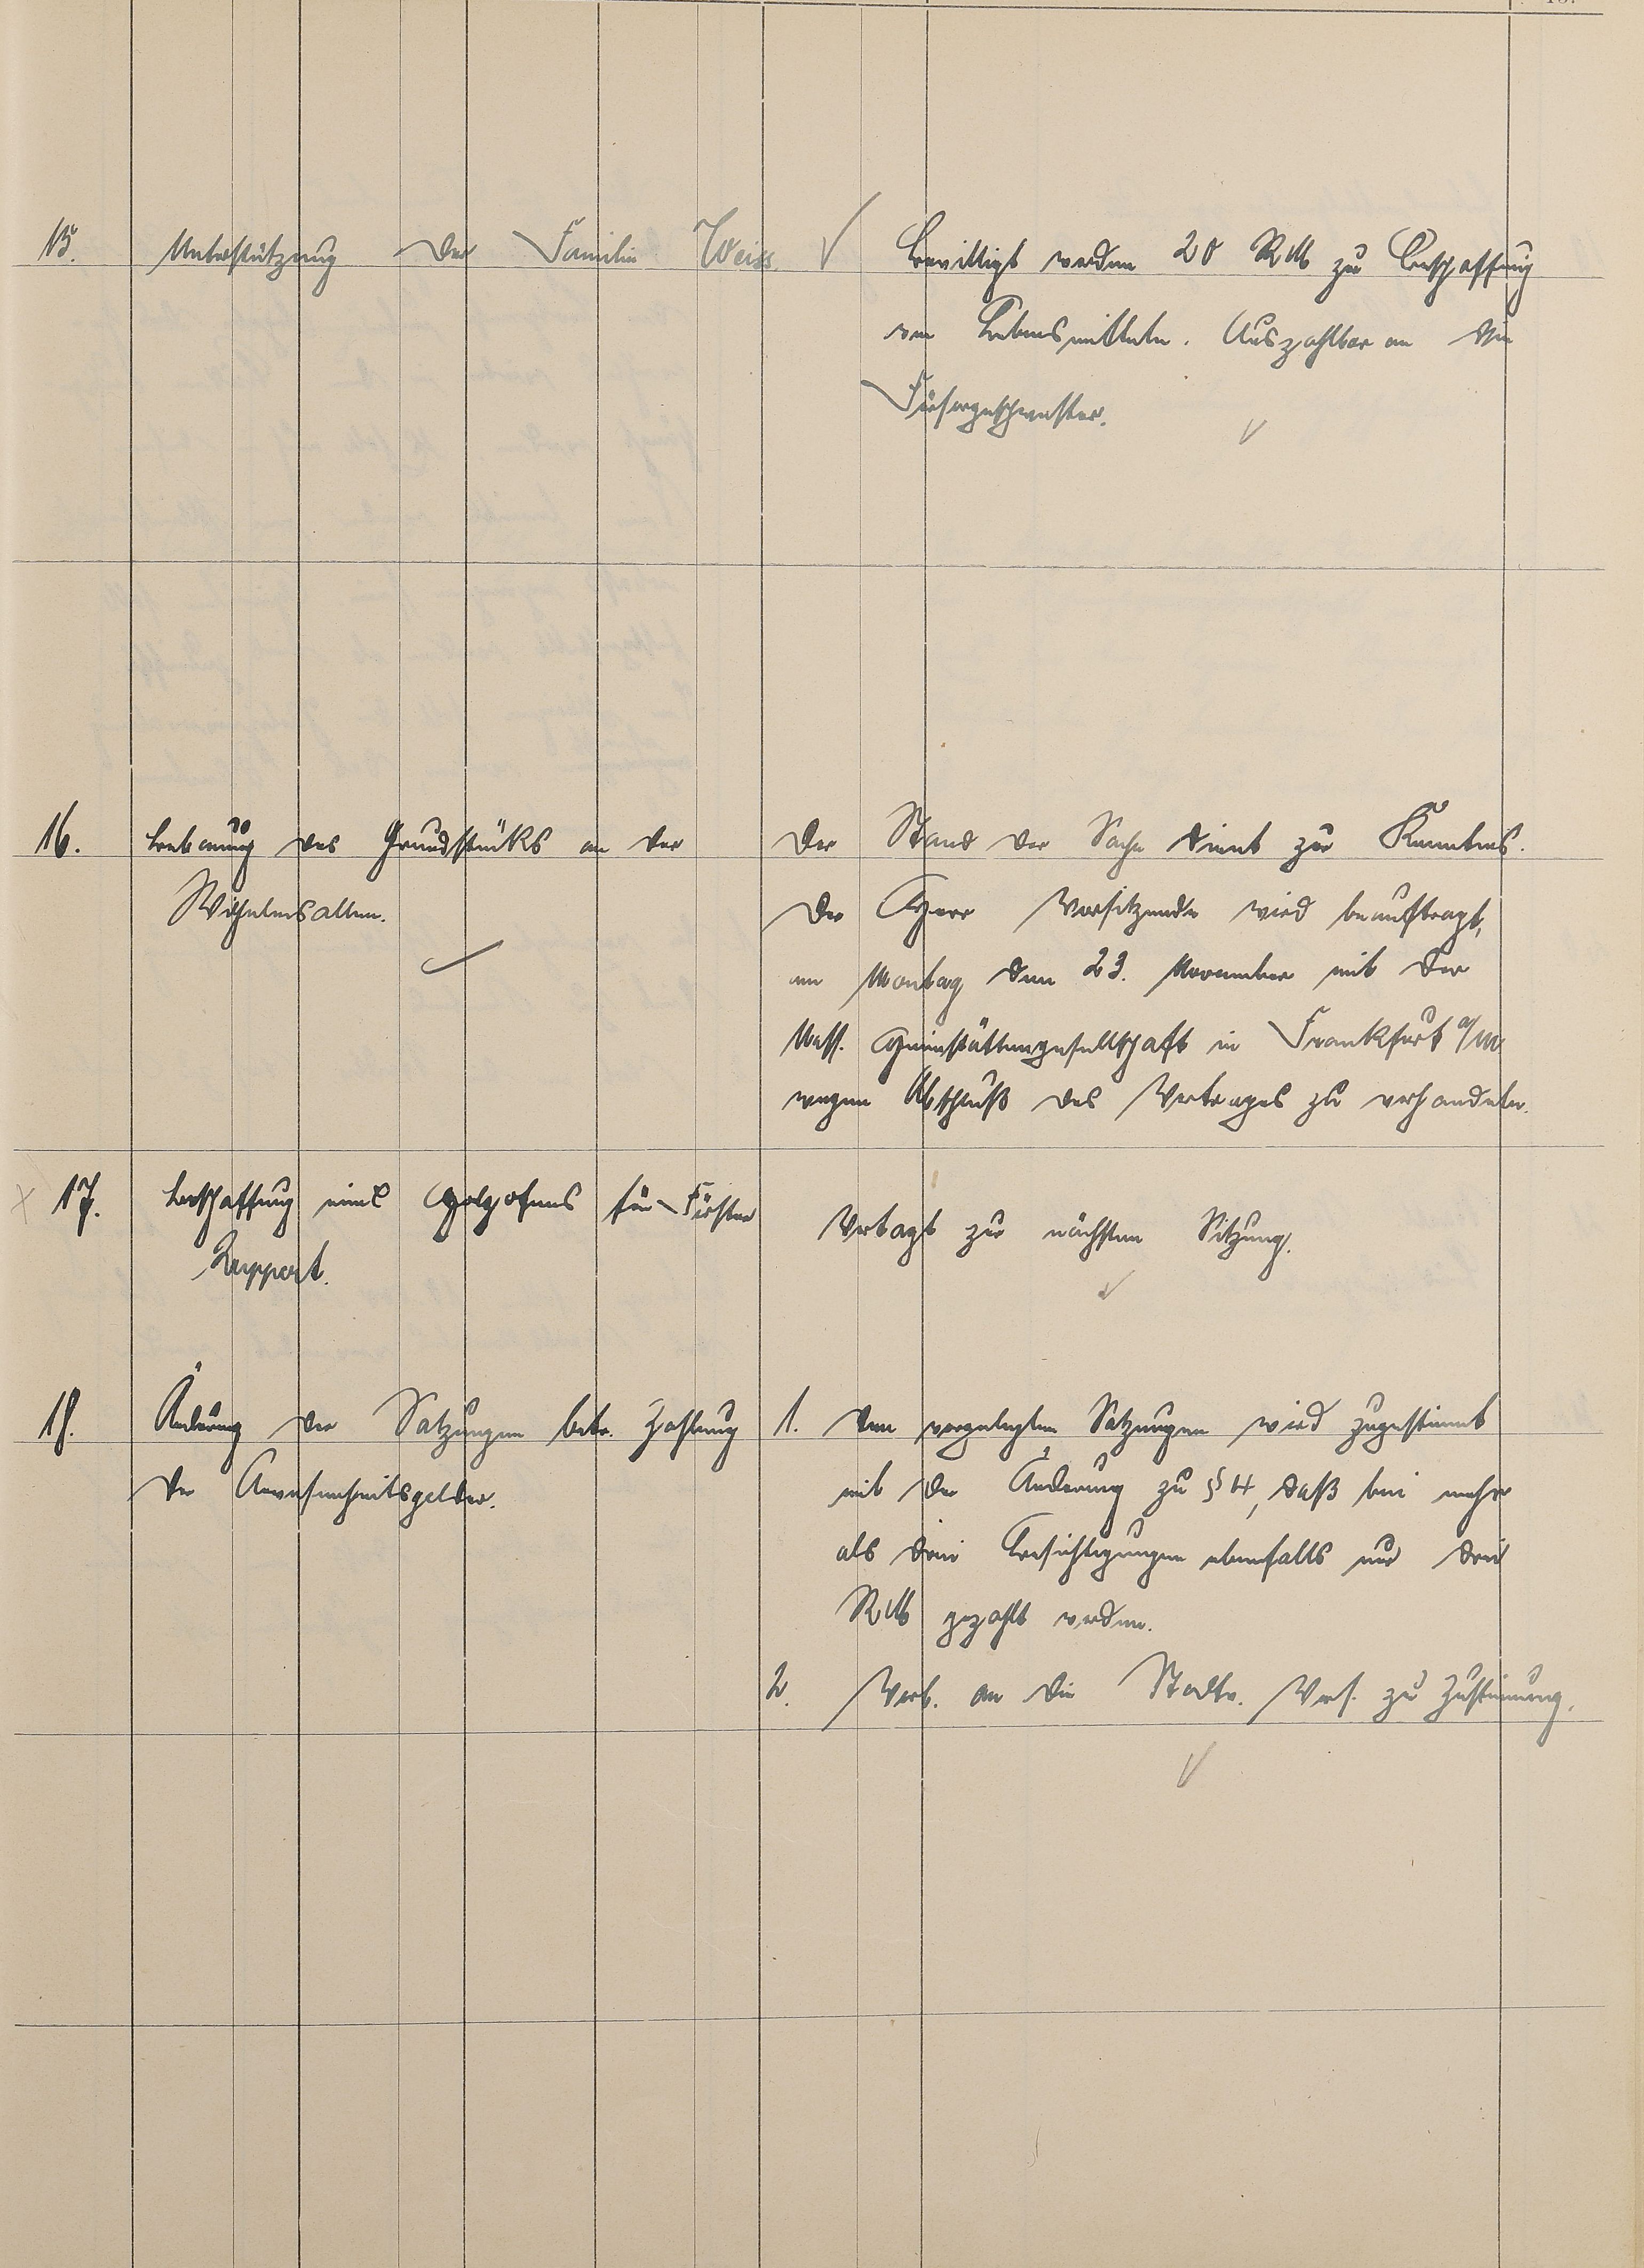 15. Unterstützung der Familie Weiss.
Bewilligt werden 20 RM zu Beschaffung
von Lebensmitteln. Auszahlbar an die
Fürsorgeschwester.
16. Bebauung des Grundstücks an der
Wilhelmsallee.
Der Stand der Sache dient zur Kenntnis.
Der Herr Vorsitzende wird beauftragt,
am Montag den 23. November mit der
Nass. Heimstättengesellschaft in Frankfurt a/M
wegen Abschluß des Vertrages zu verhandeln.
17. Beschaffung eines Holzofens für Förster
Ruppert.
Vertagt zur nächsten Sitzung.
18. Änderung der Satzungen betr. Zahlung
der Anwesenheitsgelder.
1. Den vorgelegten Satzungen wird zugestimmt
mit der Änderung zu § 4, daß bei mehr
als drei Besichtigungen ebenfalls nur drei
RM gezahlt werden.
2. Verf. an die Stadtv. Vers. zu Zustimmung.